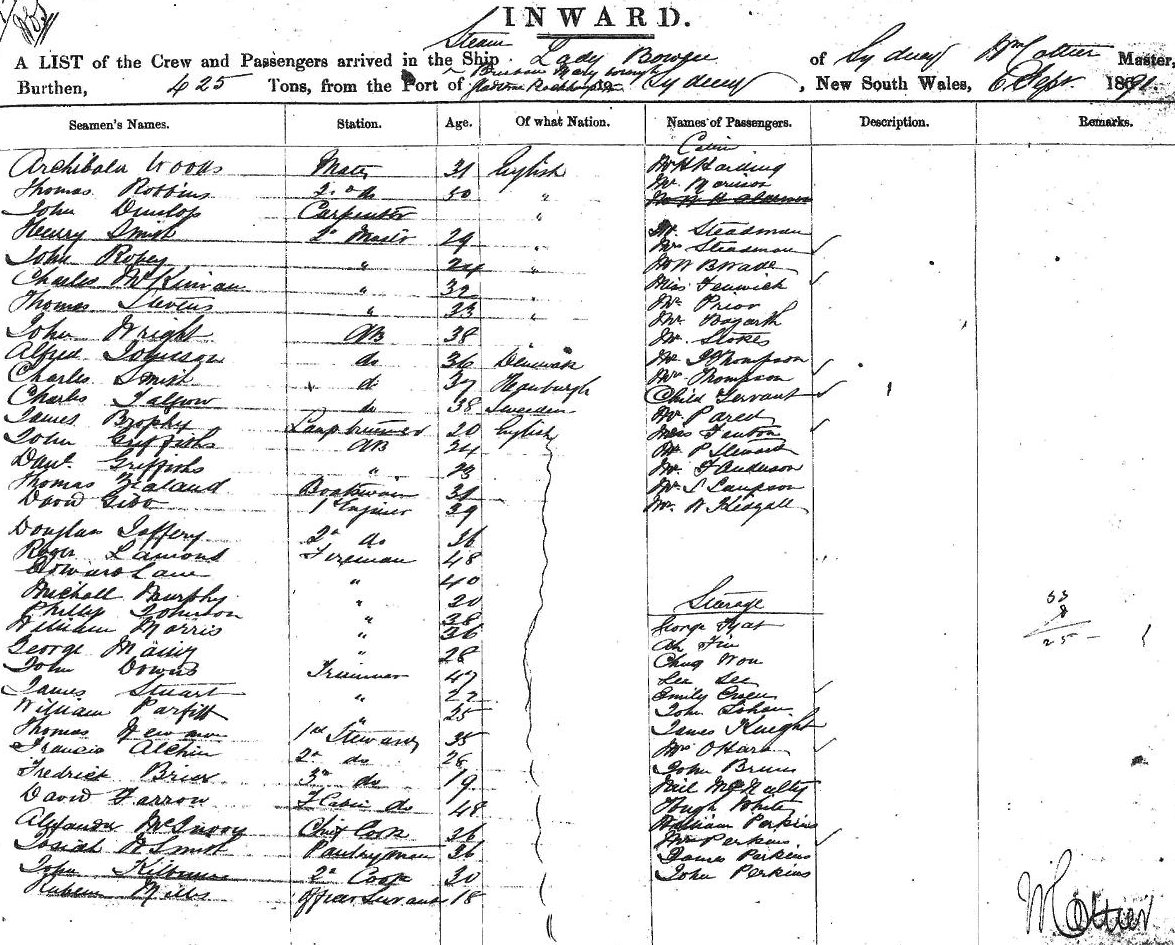 INWARD.
A LIST of the Crew and Passengers arrived in the Ship Steam Lady Bowen of Sydney Wm Cottier Master,
Burthen, 425 Tons, from the Port of Brisbane Maryborough to Sydney, New South Wales, 6 Sept. 1891
Seamen's Names. Station. Age. Of what Nation. Names of Passengers. Description. Remarks.
Cabin
Archibald Woods Mate 31 English Mr H Harding
Thomas Robbins 2nd do 50 " Mr Morison
John Dunlop Carpenter "
Henry Smith 29 " Mr Steadman
John " 24 " Mrs Steadman
Charles McKinvan " 32 " Mr W B Wade
Thomas Stevens " 23 " Miss Fenwick
John Wright AB 38 Mr Prior
Alfred Johnson do 36 Denmark Mr Bogarth
Charles Smith do 37 Hamburgh Mr Stokes
Charles do 38 Sweden Mr J Thompson
James Brophy Lamptrimmer 20 English Mrs Thompson
John Griffiths AB 34 Child Servant
Danl. Griffiths " 23 Mr
Thomas Zealand Boatswain 31 Miss Fanton
David Gibb 1st Engineer 39 Mr P Stewart
Mr F Anderson
Mr S Sampson
Mr W
Douglas Jaffery 2nd do 36
Roger Lamond Fireman 48
Edward Lane " 40
Michall Murphy " 20
Phillip Johnson " 38 Steerage
William Morris " 36 George
George " 28 Ah Fin
John Downs Trimmer 47 Chug Won
James Stuart " 22 Lee See
William Parfitt " 25 Emily Green
Thomas Newman 1st Steward 35 John
Francis Alchin 2nd do 28 James Knight
Fredrick Brier 3rd do 19 Mrs O'Hara
David Farrow F Cabin do 48 John Bruce
Chief Cook 26 Neil McNalty
Josiah W Smith Pantryman 36 Hugh White
John 2nd Cook 30 William Perkins
Mills Officer Servant 18 Mrs Perkins
James Perkins
John Perkins
33
8
25
W Cottier